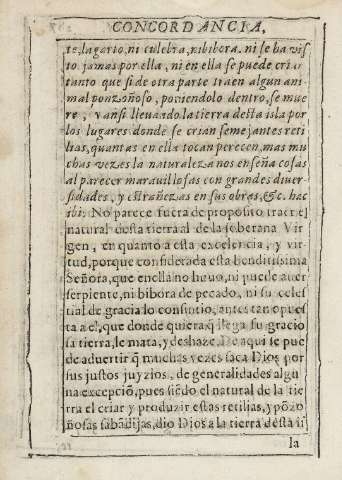 CONCORDANCIA.
te, lagarto, ni culebra, ni bibora, ni se ha vis
to jamas por ella, ni en ella se puede criar
tanto que si de otra parte traen algun ani
mal ponzoñoso, poniendolo dentro, se mue
re, y ansi lleuando la tierra desta isla por
los lugares donde se crian semejantes reti
lias, quantas en ella tocan perecen, mas mu
chas vezes la naturaleza nos enseña cosas
al parecer marauillosas con grandes diuer-
sidades, y estrañezas en sus obras, &c. hac
ibi: No parece fuera de proposito traer el
natural desta tierra al de la soberana Vir
gen, en quanto a esta excelencia, y vir
tud, porque considerada esta benditissima
Señora, que en ella no huuo, ni puede auer
serpiente, ni bibora de pecado, ni su celes
tial de gracia lo consintio, antes tan opues
ta a el, que donde quiera q̃ llega su gracio
sa tierra, le mata, y deshaze. De aqui se pue
de aduertir q̃ muchas vezes saca Dios por
sus justos juyzios, de generalidades algu
na excepciõ, pues siẽdo el natural de la tie
rra el criar y produzir estas retilias, y põzo
ñosas sabãdijas, dio Dios a la tierra desta is
la